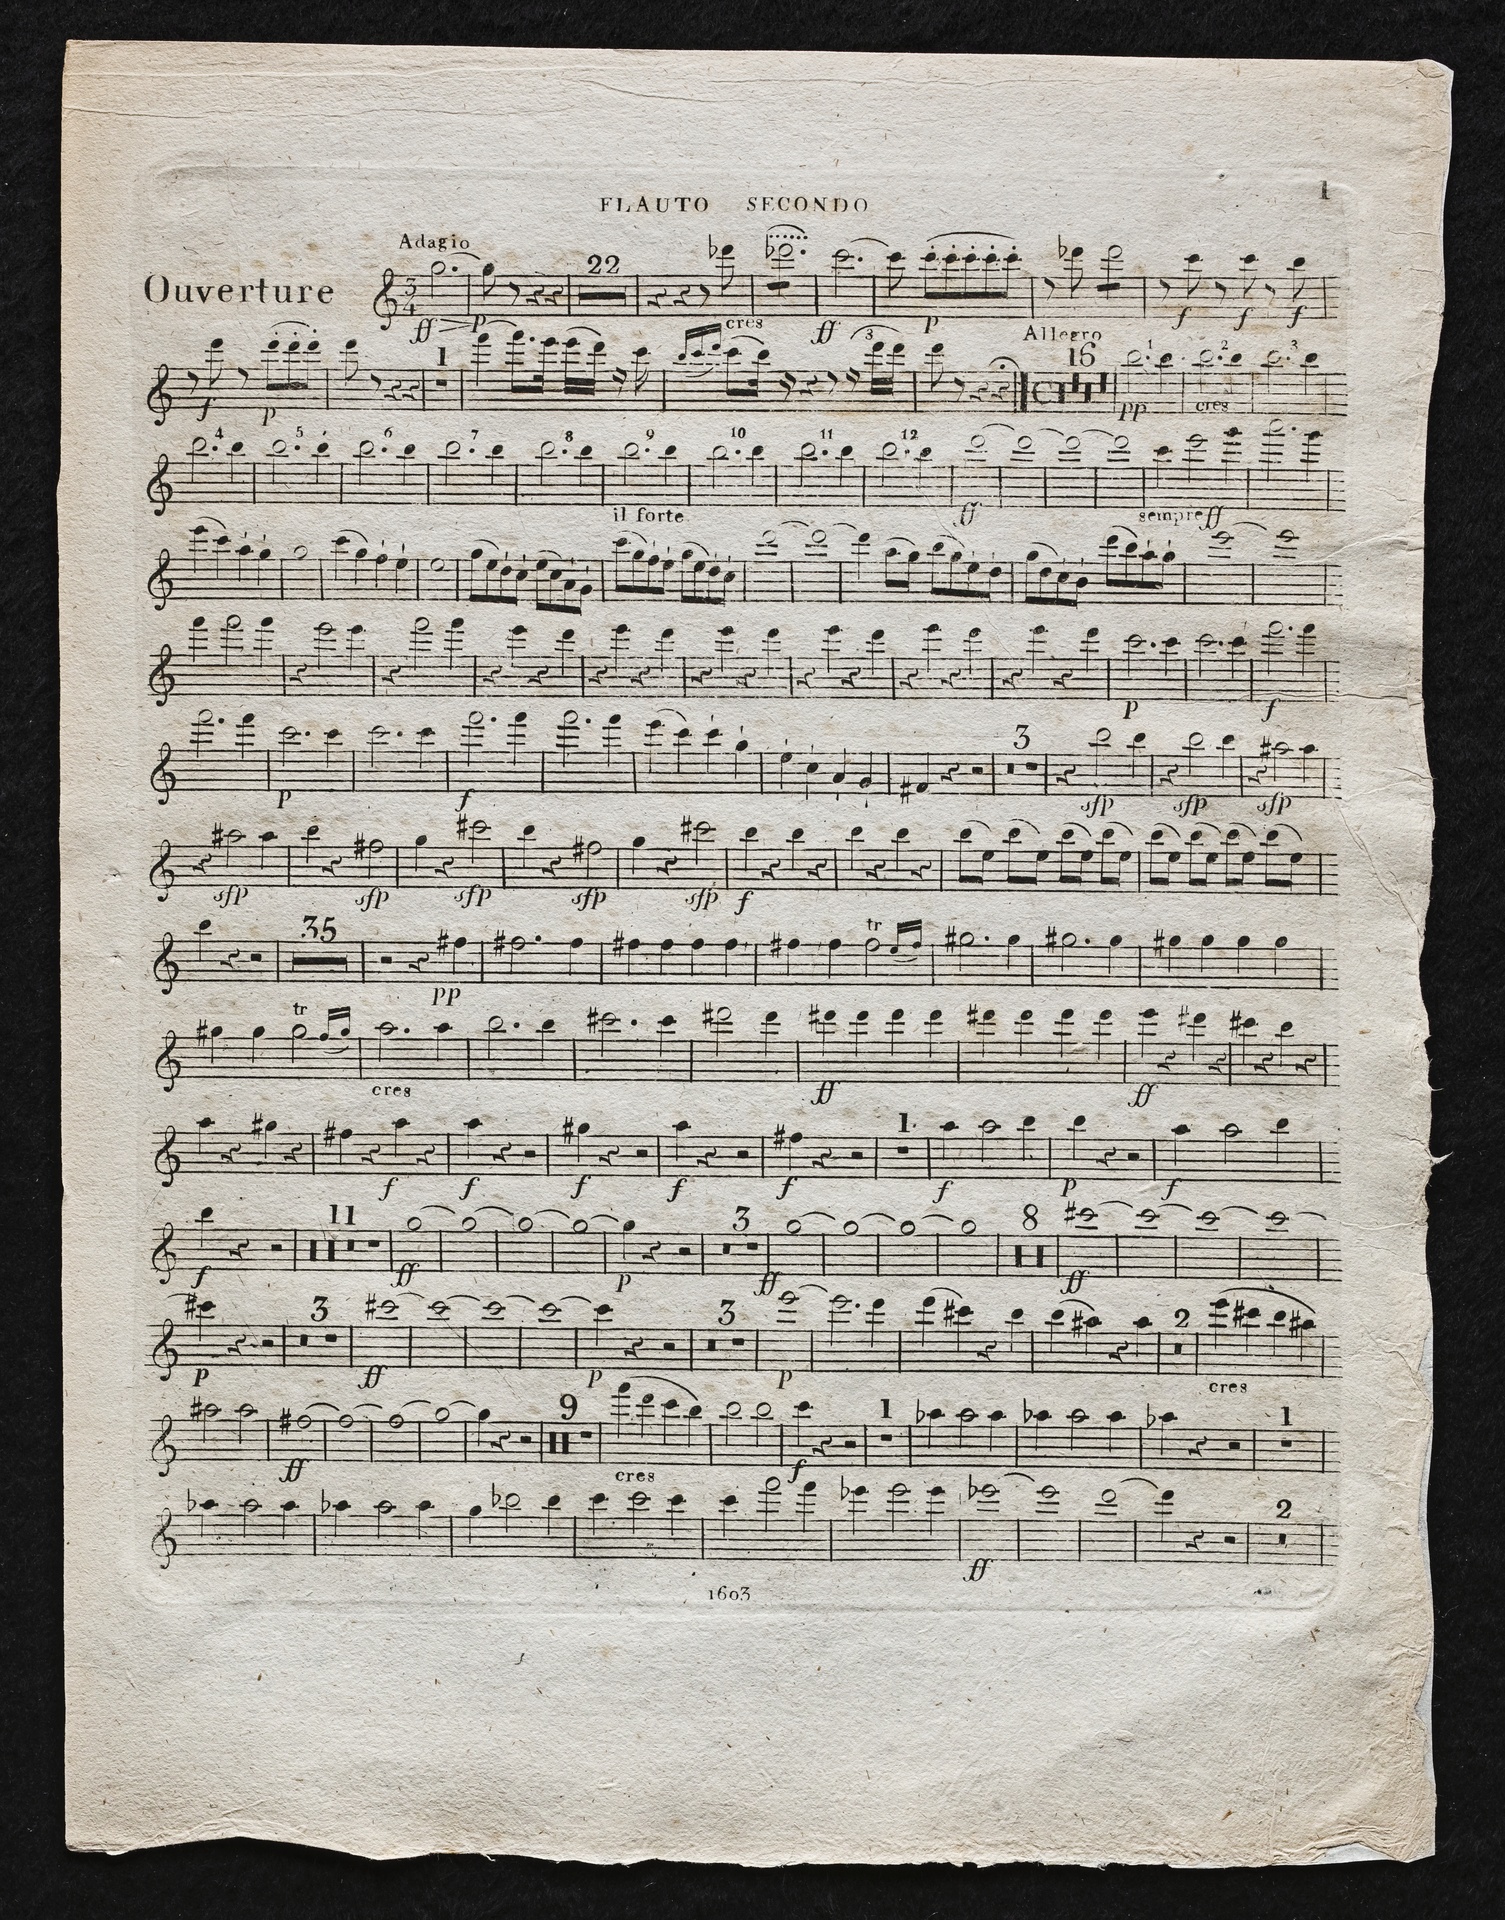 1
FLAUTO SECONDO
Adagio
Ouverture
3
4
22
ff p cres ff p f f f
Allegro
1 3 16 1 2 3
f p pp cres
4 5 6 7 8 9 10 11 12
il forte ff sempre ff
p f
3
p f sfp sfp sfp
sfp sfp sfp sfp sfp f
35 tr
pp
tr
cres ff ff
1
f f f f f f p f
11 3 8
f ff p ff ff
3 3 2
p ff p p cres
9 1 1
ff cres f
2
ff
1603